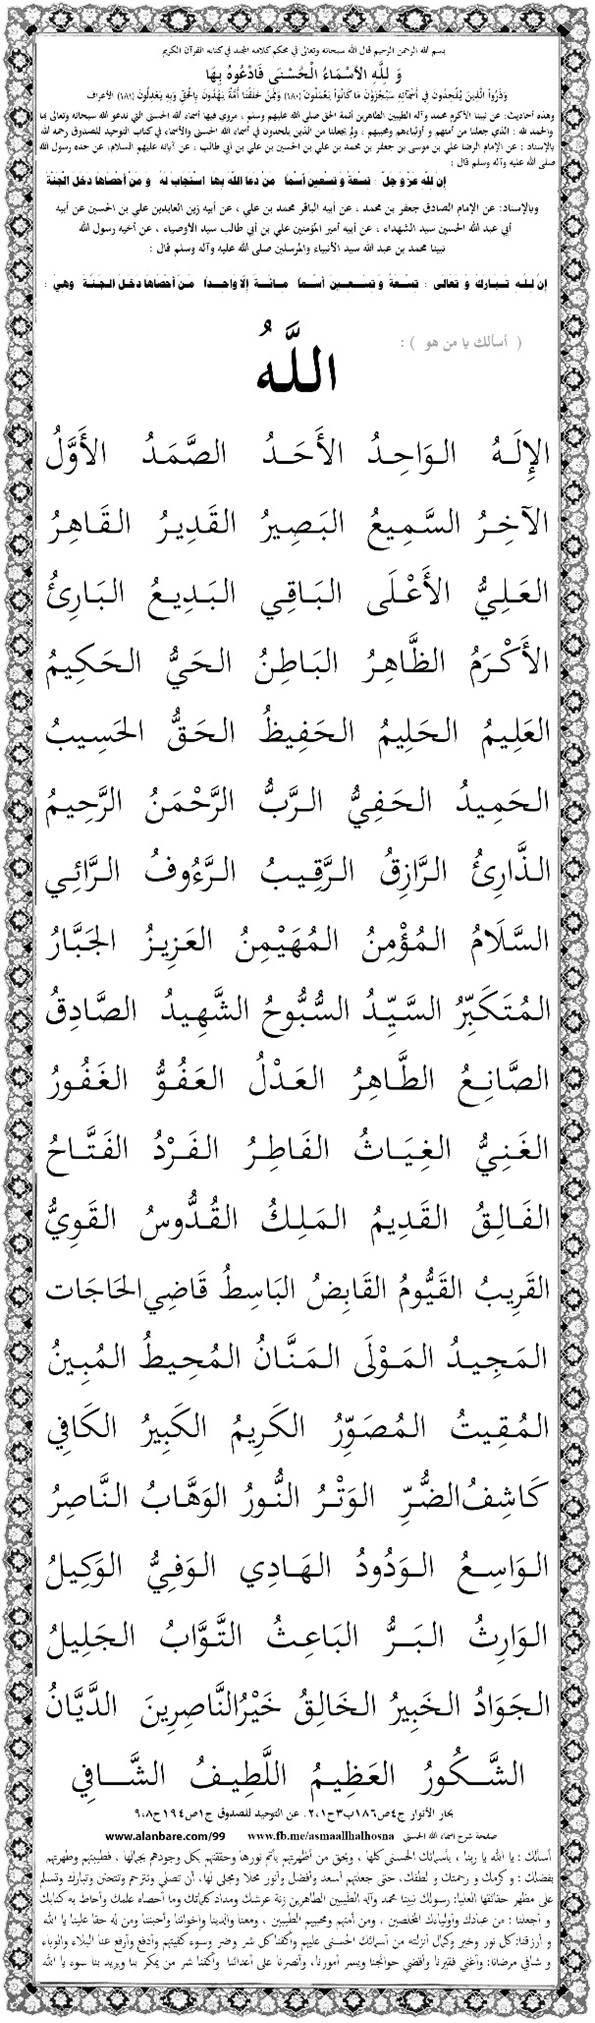 بسم الله الرحمن الرحيم قال الله سبحانه وتعالى في محكم كلامه المجيد في كتابه القرآن الكريم
وَ لِلَّهِ الْأَسْمَاءُ الْحُسْنَى فَادْعُوهُ بِهَا
وَذَرُوا الَّذِينَ يُلْحِدُونَ فِي أَسْمَائِهِ سَيُجْزَوْنَ مَا كَانُوا يَعْمَلُونَ (١٨٠) وَمِمَّنْ خَلَقْنَا أُمَّةٌ يَهْدُونَ بِالْحَقِّ وَبِهِ يَعْدِلُونَ (١٨١) الأعراف
وهذه أحاديث: عن نبينا الأكرم محمد وآله الطيبين الطاهرين أئمة الحق صلى الله عليهم وسلم ، مروي فيها أسماء الله الحسنى التي ندعو الله سبحانه وتعالى بها
والحمد لله : الذي جعلنا من أمتهم و أوليائهم ومحبيهم ; ولم يجعلنا من الذين يلحدون في أسماء الله الحسنى والأسماء في كتاب التوحيد للصدوق رحمه الله
بالإسناد : عن الإمام الرضا علي بن موسى بن جعفر بن محمد بن علي بن الحسين بن علي بن أبي طالب ، عن آبائه عليهم السلام، عن جده رسول الله
صلى الله عليه وآله وسلم قال :
إن لله عز و جل : تسعة و تسعين أسما من دعا الله بها استجاب له و من أحصاها دخل الجنة
وبالإسناد: عن الإمام الصادق جعفر بن محمد ، عن أبيه الباقر محمد بن علي ، عن أبيه زين العابدين علي بن الحسين عن أبيه
أبي عبد الله الحسين سيد الشهداء ، عن أبيه أمير المؤمنين علي بن أبي طالب سيد الأوصياء ، عن أخيه رسول الله
نبينا محمد بن عبد الله سيد الأنبياء والمرسلين صلى الله عليه وآله وسلم قال :
إن لله تبارك و تعالى : تسعة و تسعين أسما مائة إلا واحدا من أحصاها دخل الجنة وهي :
( أسألك يا من هو ) :
اللَّهُ
الإِلَهُ الوَاحِدُ الأَحَدُ الصَّمَدُ الأَوَّلُ
الآخِرُ السَّمِيعُ البَصِيرُ القَدِيرُ القَاهِرُ
العَلِيُّ الأَعْلَى البَاقِي البَدِيعُ البَارِئُ
الأَكْرَمُ الظَّاهِرُ البَاطِنُ الحَيُّ الحَكِيمُ
العَلِيمُ الحَلِيمُ الحَفِيظُ الحَقُّ الحَسِيبُ
الحَمِيدُ الحَفِيُّ الرَّبُّ الرَّحْمَنُ الرَّحِيمُ
الذَّارِئُ الرَّازِقُ الرَّقِيبُ الرَّءُوفُ الرَّائِي
السَّلَامُ المُؤْمِنُ المُهَيْمِنُ العَزِيزُ الجَبَّارُ
المُتَكَبِّرُ السَّيِّدُ السُّبُّوحُ الشَّهِيدُ الصَّادِقُ
الصَّانِعُ الطَّاهِرُ العَدْلُ العَفُوُّ الغَفُورُ
الغَنِيُّ الغِيَاثُ الفَاطِرُ الفَرْدُ الفَتَّاحُ
الفَالِقُ القَدِيمُ المَلِكُ القُدُّوسُ القَوِيُّ
القَرِيبُ القَيُّومُ القَابِضُ البَاسِطُ قَاضِي الحَاجَات
المَجِيدُ المَوْلَى المَنَّانُ المُحِيطُ المُبِينُ
المُقِيتُ المُصَوِّرُ الكَرِيمُ الكَبِيرُ الكَافِي
كَاشِفُ الضُّرِّ الوَتْرُ النُّورُ الوَهَّابُ النَّاصِرُ
الوَاسِعُ الوَدُودُ الهَادِي الوَفِيُّ الوَكِيلُ
الوَارِثُ البَرُّ البَاعِثُ التَّوَّابُ الجَلِيلُ
الجَوَادُ الخَبِيرُ الخَالِقُ خَيْرُ النَّاصِرِينَ الدَّيَّانُ
الشَّكُورُ العَظِيمُ اللَّطِيفُ الشَّافِي
بحار الأنوار ج٤ص١٨٦ب٣ح١،٢. عن التوحيد للصدوق ج١ص١٩٤ح٨،٩
صفحة شرح أسماء الله الحسنى www.fb.me/asmaallhalhosna www.alanbare.com/99
أسألك : يا الله يا ربنا ، بأسمائك الحسنى كلها ، وبحق من أظهرتهم بأتم نورها وحققتهم بكل وجودهم بجمالها ، فطيبتهم وطهرتهم
بفضلك : و كرمك و رحمتك و لطفك، حتى جعلتهم أسعد وأفضل وأنور محلا ومجلى لها، أن تصلي وتترحم وتتحنن وتبارك وتسلم
على مظهر حقائقها العليا: رسولك نبينا محمد وآله الطيبين الطاهرين زنة عرشك ومداد كلماتك وما أحصاه علمك وأحاط به كتابك
و أجعلنا : من عبادك وأوليائك المخلصين ، ومن أمتهم ومحبيهم الطيبين ، ومعنا والدينا وإخواننا وأحبتنا ومن له حقا علينا يا الله
و أرزقنا: كل نور وخير وكمال أنزلته من أسمائك الحسنى عليهم وأكفنا كل شر وضر وسوء كفيتهم وأدفع وأرفع عنا البلاء والوباء
و شافي مرضانا: وأغني فقيرنا وأقضي حوائجنا ويسر أمورنا، وأنصرنا على أعدائنا وأكفنا شر من يمكر بنا ويريد بنا سوء يا الله